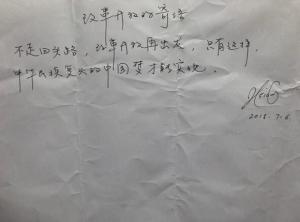 改革开放的寄语
不走回头路，改革开放再出发，只有这样，
中华民族复兴的中国梦才能实现。
2018.7.6